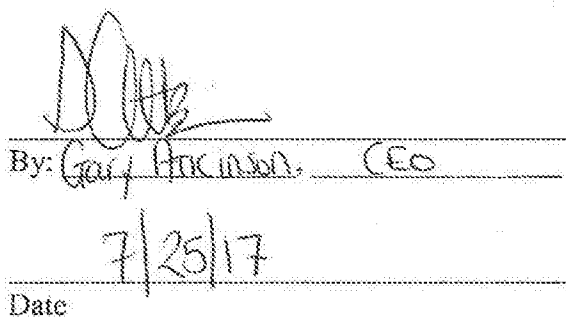 By: Gary Atkinson, CEO
7/25/17
Date